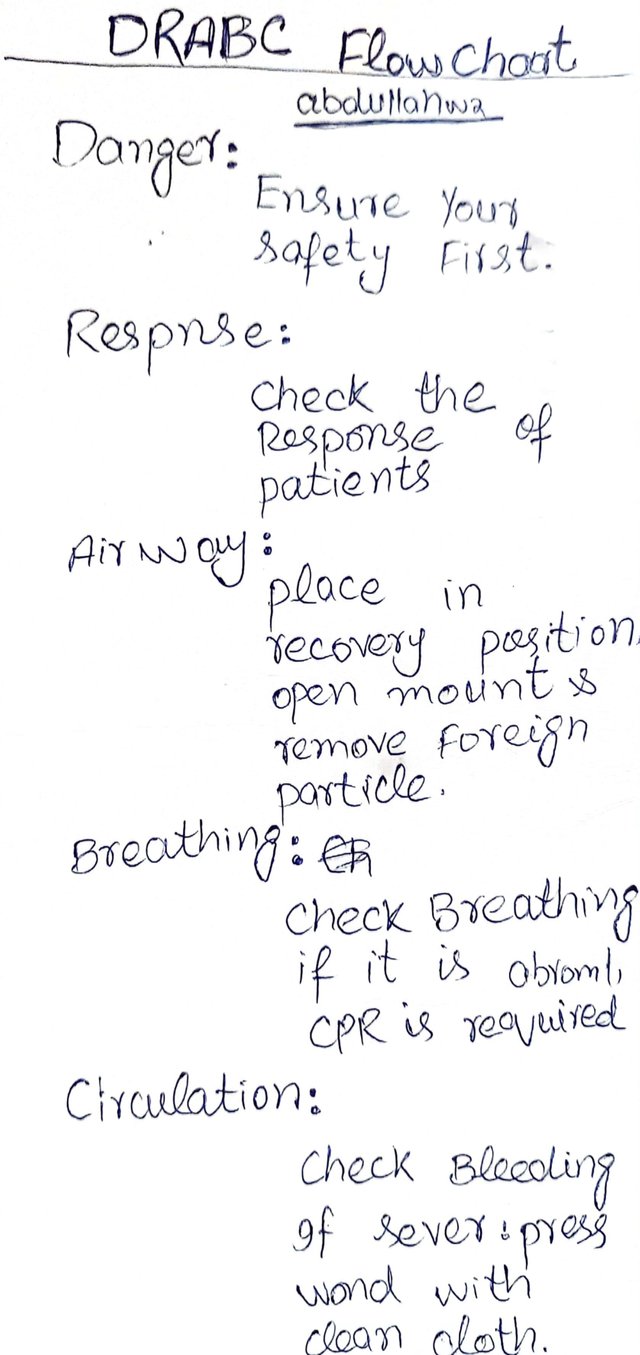 DRABC Flow Chart
abdullahwa
Danger:
Ensure Your
safety First.
Respnse:
Check the
Response of
patients
Airway:
place in
recovery position,
open mount &
remove Foreign
particle.
Breathing:
Check Breathing
if it is abroml,
CPR is required
Circulation:
Check Bleeding
If sever: press
wond with
clean cloth.